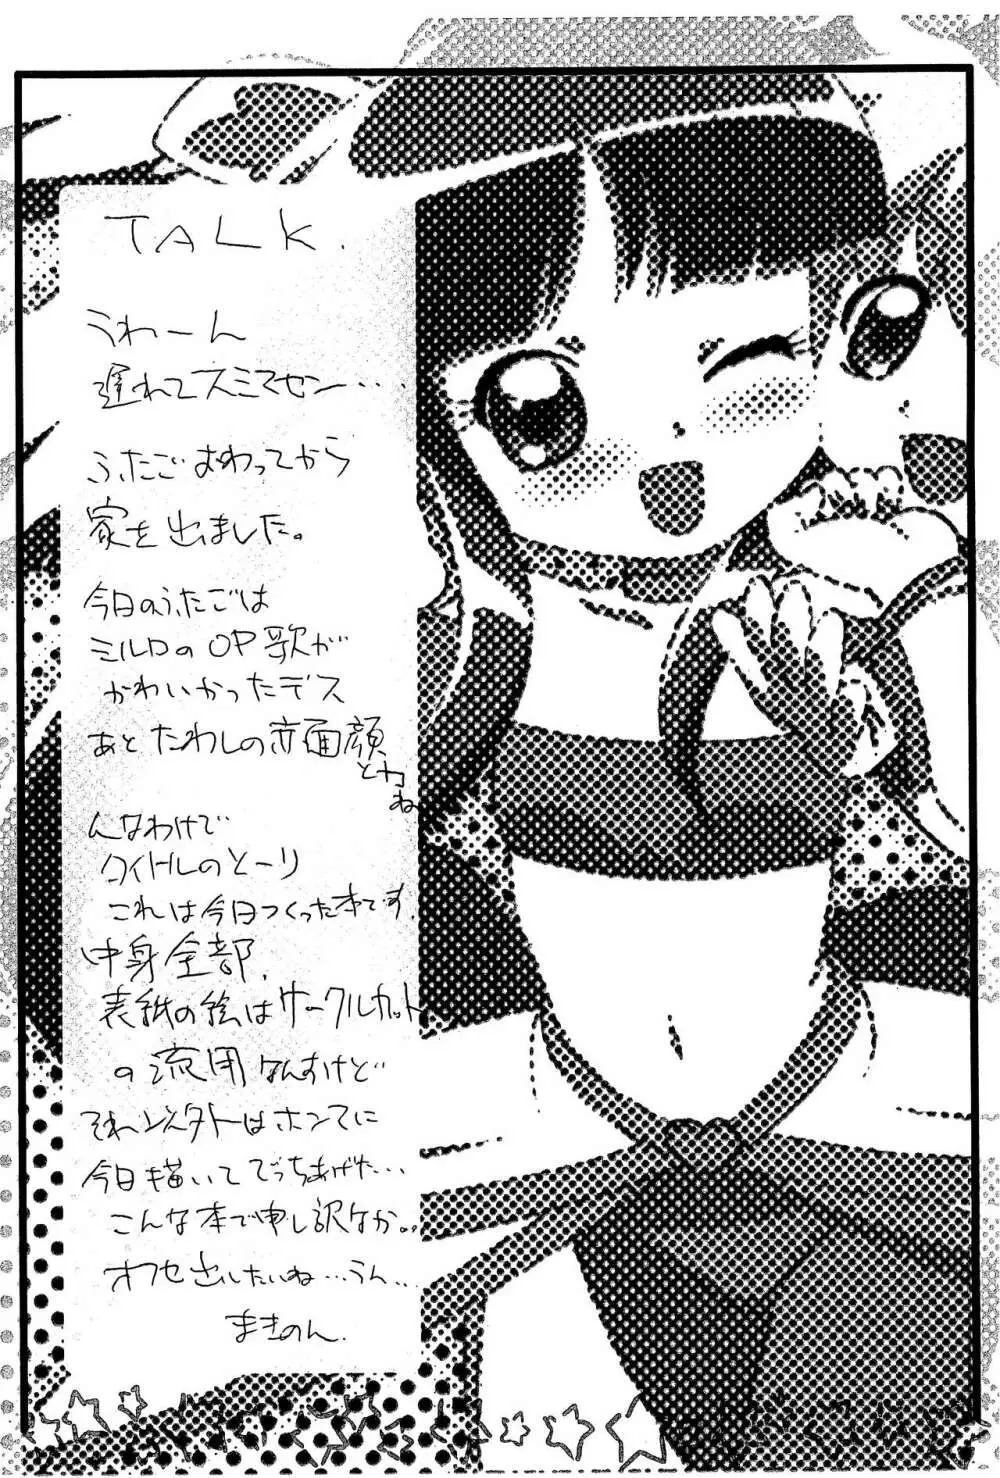 TALK.
うわーん
遅れてスミマセン・・・
ふたごおわってから
家を出ました。
今日のふたごは
ミルロのOP歌が
かわいかったデス
あとたわしの赤面顔
とかね
んなわけで
タイトルのとーり
これは今日つくった本です.
中身全部.
表紙の絵はサークルカット
の流用なんすけど
それ以外はホンてに
今日描いてでっちあげた...
こんな本で申し訳なか..
オフセ出したいね...うん..
まきのん.